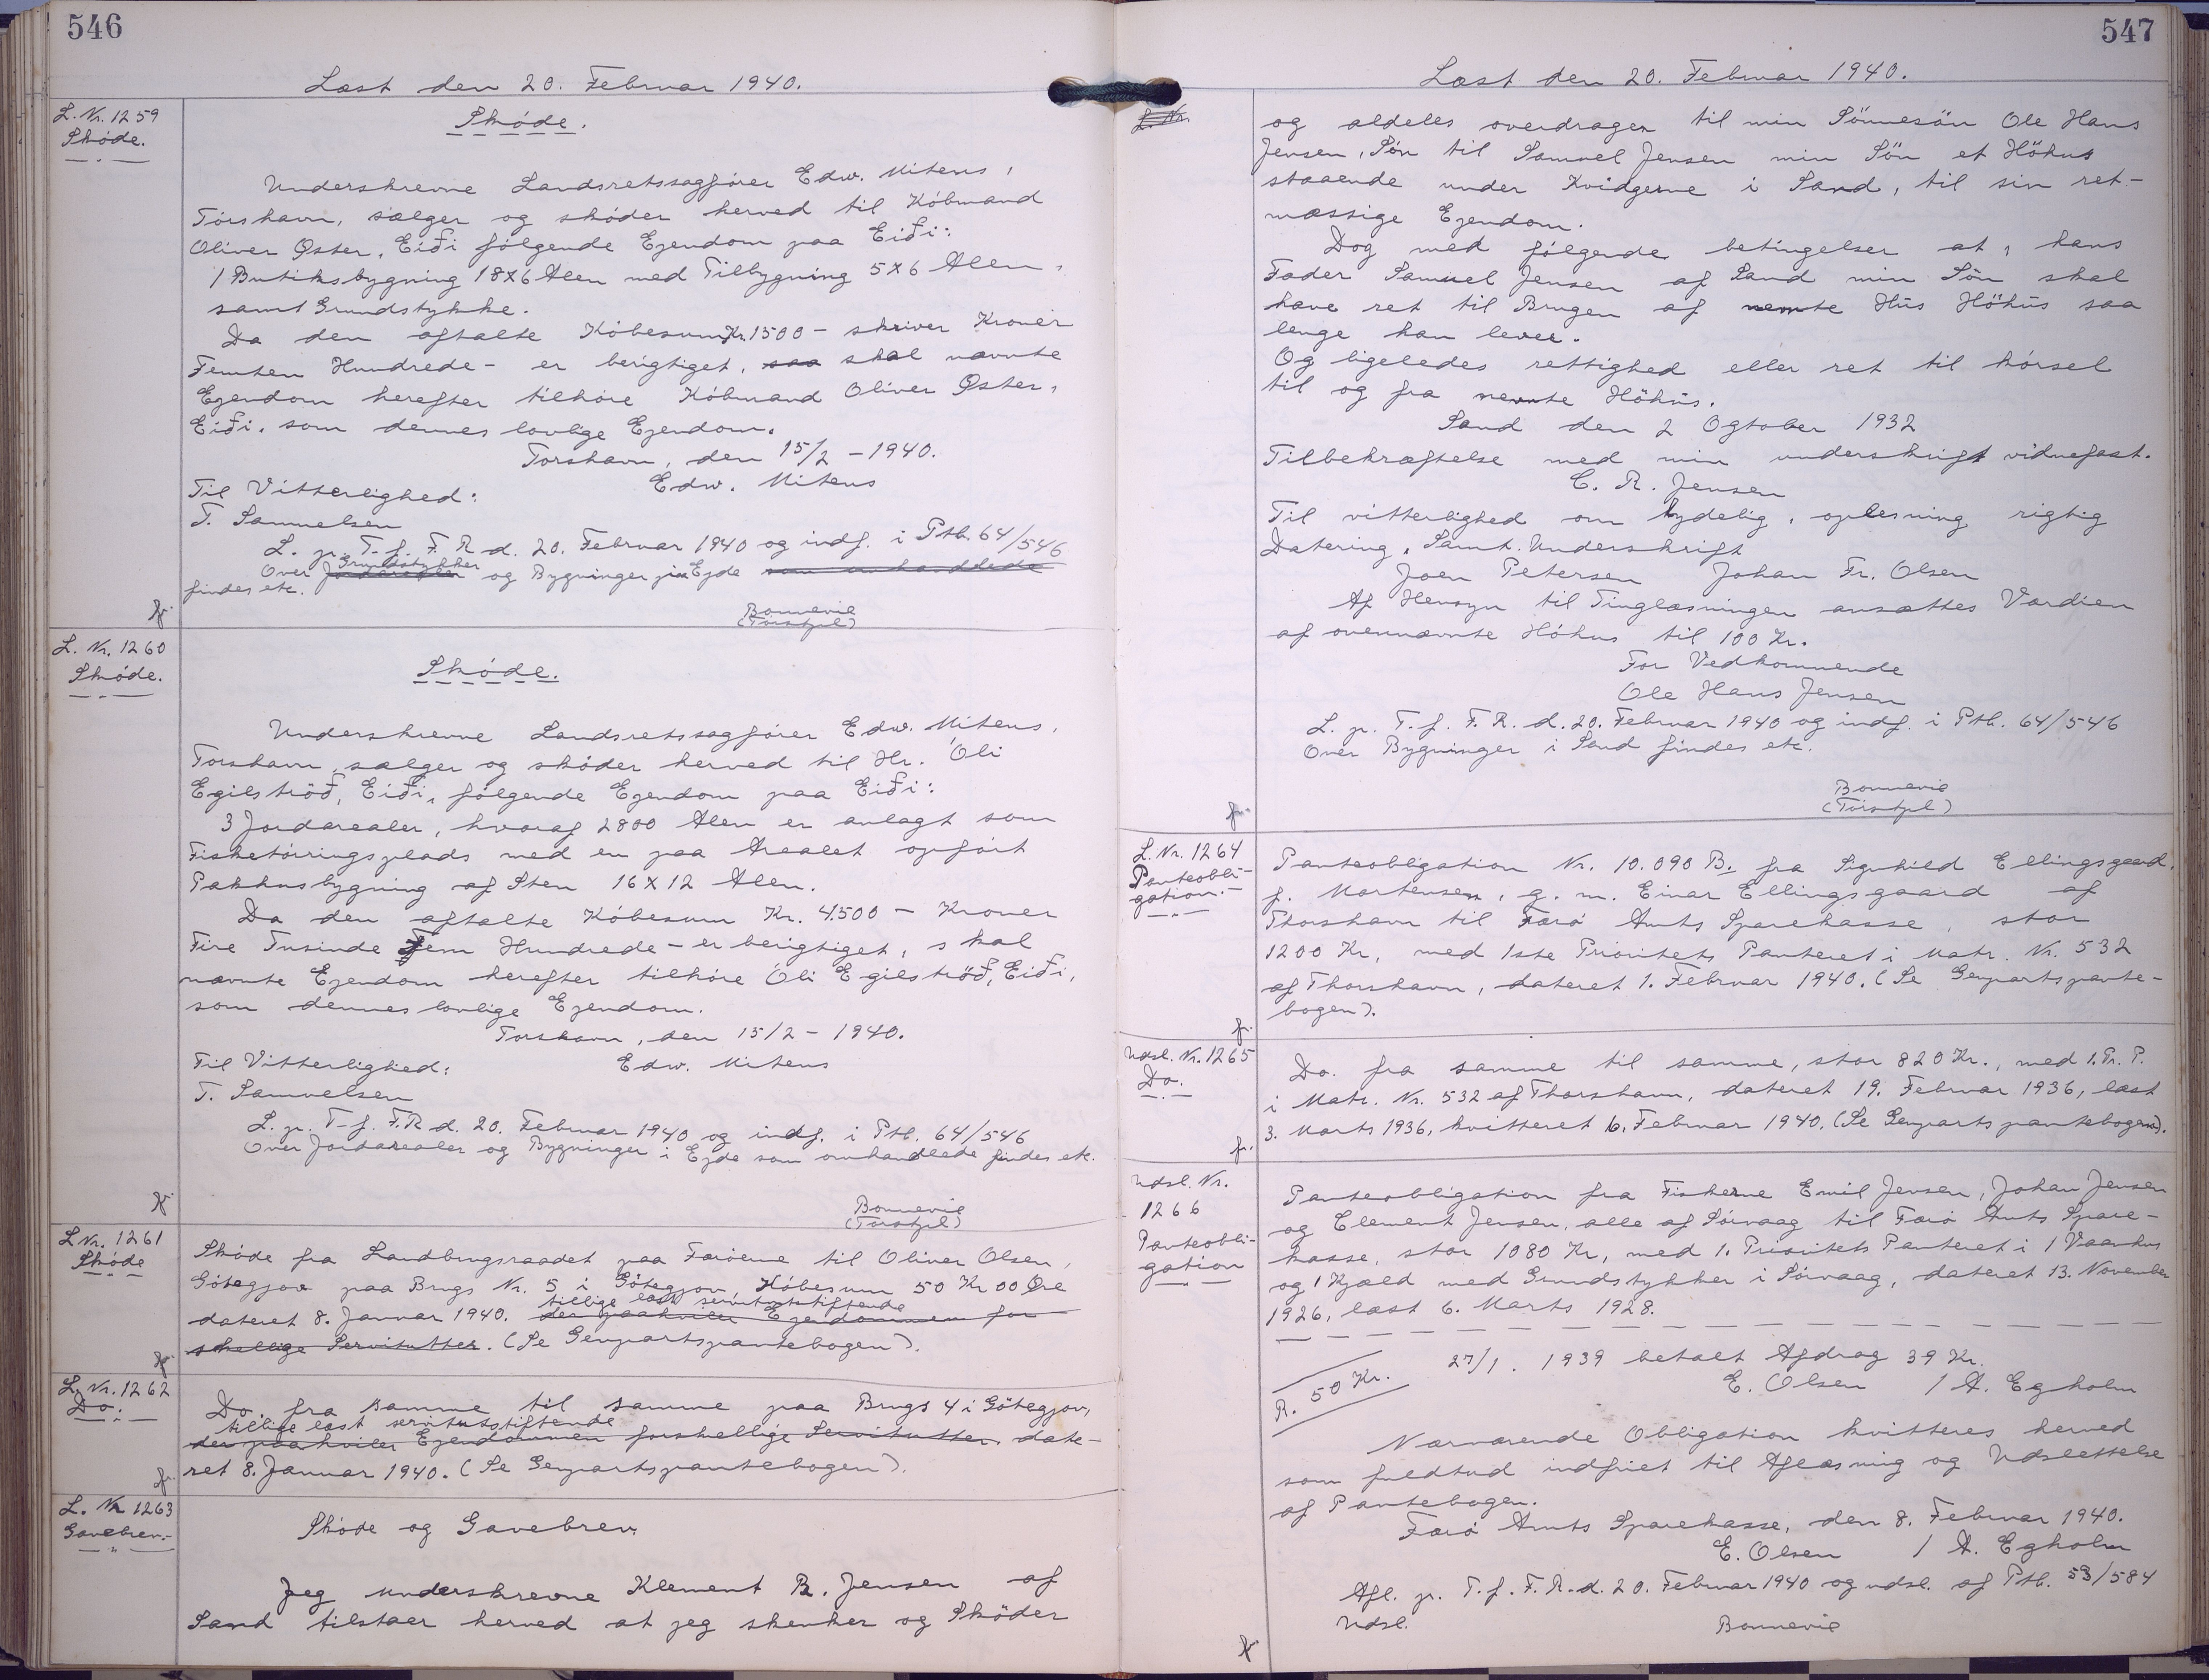 546
Læst den 20. Februar 1940.
L. Nr. 1259
Skóde.
Skóde.
Underskrevne Landsretssagfører Edw. Mitens,
Tórshavn, sælger og skóder herved til Kóbmand
Oliver Øster, Eiði følgende Ejendom paa Eiði:
1 Butiksbygning 18x6 Alen med Tilbygning 5x6 Alen,
samt Grundstykke.
Da den aftalte Kóbesum Kr. 1500 - skriver Kroner
Femten Hundrede - er berigtiget, saa skal nævnte
Ejendom herefter tilhóre Kóbmand Oliver Øster,
Eiði, som dennes lovlige Ejendom.
Torshavn, den 15/2 - 1940.
Til Vitterlighed: Edw. Mitens
T. Samuelsen
L. p. T. f. F. R d. 20. Februar 1940 og indf. i Ptb. 64/546
Grundstykker
Over Jordarealer og Bygninger i Ejde som omhandlede
findes etc.
Bonnevie
L. Nr. 1260
Skóde.
Skóde.
Underskrevne Landsretssagfører Edw. Mitens,
Torshavn, sælger og skóder herved til Hr. Óli
Egilstróð, Eiði, følgende Ejendom paa Eiði:
3 Jordarealer, hvoraf 2800 Alen er anlagt som
Fisketórringsplads med en paa Arealet opfórt
Pakhusbygning af Sten 16 x 12 Alen.
Da den aftalte Kóbesum Kr. 4500 - Kroner
Fire Tusinde Fem Hundrede - er berigtiget, skal
nævnte Ejendom herefter tilhóre Óli Egilstróð, Eiði,
som dennes lovlige Ejendom.
Torshavn, den 15/2 - 1940.
Til Vitterlighed: Edw. Mitens
T. Samuelsen
L. p. T. f. F. R d. 20. Februar 1940 og indf. i Ptb. 64/546
Over Jordarealer og Bygninger i Ejde som omhandlede findes etc.
Bonnevie
L Nr. 1261
Skóde
Skóde fra Landbrugsraadet paa Færóerne til Oliver Olsen,
Gótegjov paa Brugs Nr. 5 i Gótegjov Kóbesum 50 Kr 00 Øre
tillige læst servitutstiftende
dateret 8. Januar 1940. der paahviler Ejendommen for
skellige Servitutter. (Se Genpartspantebogen).
L. Nr. 1262
Do.
Do. fra samme til samme paa Brugs 4 i Gótegjov,
tillige læst servitutstiftende
der paahviler Ejendommen forskellige Servitutter, date-
ret 8. Januar 1940. (Se Genpartspantebogen).
L. Nr 1263
Gavebrev.
Skóde og Gavebrev.
Jeg underskrevne Klement R. Jensen af
Sand tilstaar herved at jeg skenker og Sköder
547
Læst den 20. Februar 1940.
L. Nr.
og aldeles overdrager til min Sönnesön Ole Hans
Jensen, Sön til Samuel Jensen min Sön et Höhus
staaende under Kvidgerne i Sand, til sin ret-
mæssige Ejendom.
Dog med følgende betingelser at, hans
Fader Samuel Jensen af Sand min Sön skal
have ret til Brugen af nemte Hus Höhus saa
lenge han lever.
Og ligeledes rettighed eller ret til kórsel
til og fra nemte Höhus.
Sand den 2 Ogtober 1932
Tilbekræftelse med min underskrift vidnefast.
C. R. Jensen
Til vitterlighed om tydelig, oplesning rigtig
Datering, Samt. Underskrift
Joen Petersen Johan Fr. Olsen
Af Hensyn til Tinglæsningen ansættes Værdien
af ovennævnte Hóhus til 100 Kr.
For Vedkommende
Ole Hans Jensen
L. p. T. f. F. R. d. 20. Februar 1940 og indf. i Ptb. 64/546
Over Bygninger i Sand findes etc.
Bonnevie
L. Nr. 1264
Panteobli-
gation.
Panteobligation Nr. 10.090 B. fra Signhild Ellingsgaard,
f. Mortensen, g. m. Einar Ellingsgaard af
Thorshavn til Færó Amts Sparekasse, stor
1200 Kr, med 1ste Prioritets Panteret i Matr. Nr. 532
af Thorshavn, dateret 1. Februar 1940. (Se Genpartspante-
bogen).
Udsl. Nr. 1265
Do.
Do. fra samme til samme, stor 820 Kr., med 1. Pr. P.
i Matr. Nr. 532 af Thorshavn, dateret 19. Februar 1936, læst
3. Marts 1936, kvitteret 6. Februar 1940. (Se Genpartspantebogen).
Udsl. Nr.
1266
Panteobli-
gation
Panteobligation fra Fiskerne Emil Jensen, Johan Jensen
og Clement Jensen, alle af Sórvaag til Færó Amts Spare-
kasse, stor 1080 Kr, med 1. Prioritets Panteret i 1 Vaanhus
og 1 Kjæld med Grundstykker i Sórvaag, dateret 13. November
1926, læst 6. Marts 1928.
R. 50 Kr. 27/1. 1939 betalt Afdrag 39 Kr.
E. Olsen / A. Egholm
Nærværende Obligation kvitteres herved
som fuldtud indfriet til Aflæsning og Udslettelse
af Pantebogen.
Færó Amts Sparekasse, den 8. Februar 1940.
E. Olsen / A. Egholm
Afl. p. T. f. F. R. d. 20. Februar 1940 og udsl. af Ptb. 53/584
Udsl. Bonnevie